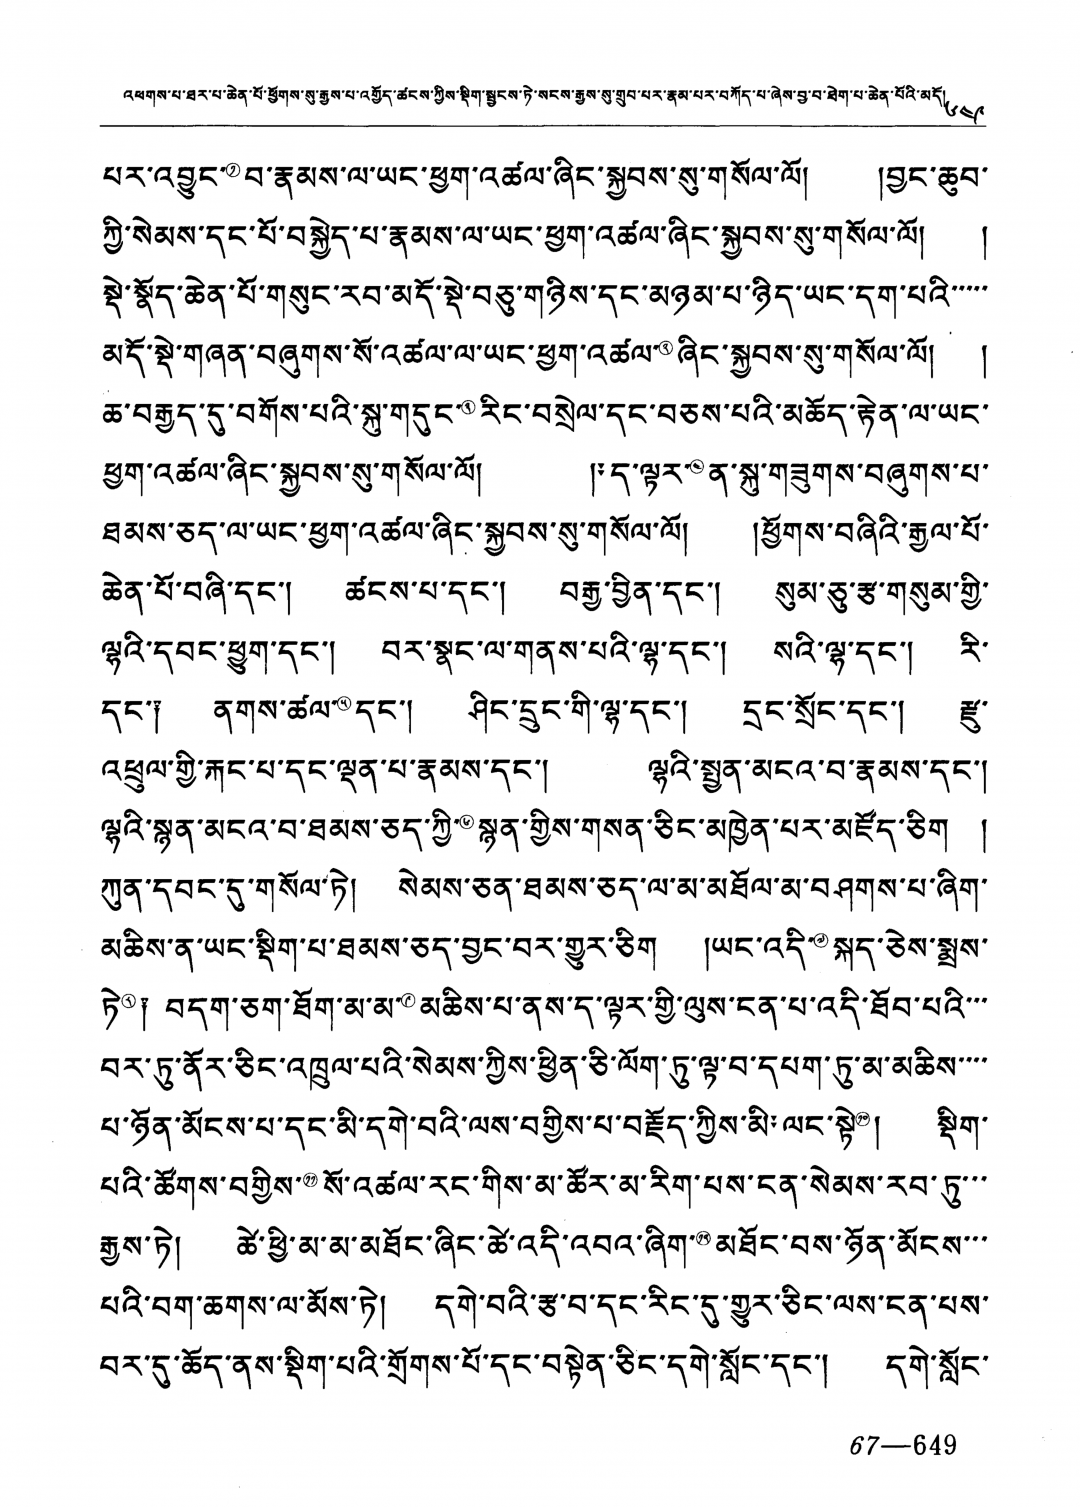 འཕགས་པ་ཐར་པ་ཆེན་པོ་ཕྱོགས་སུ་རྒྱས་པ་འགྱོད་ཚངས་ཀྱིས་སྡིག་སྦྱངས་ཏེ་སངས་རྒྱས་སུ་གྲུབ་པར་རྣམ་པར་བཀོད་པ་ཞེས་བྱ་བ་ཐེག་པ་ཆེན་པོའི་མདོ། ༦༤༩
པར་འབྱུང་①བ་རྣམས་ལ་ཡང་ཕྱག་འཚལ་ཞིང་སྐྱབས་སུ་གསོལ་ལོ། །བྱང་ཆུབ་
ཀྱི་སེམས་དང་པོ་བསྐྱེད་པ་རྣམས་ལ་ཡང་ཕྱག་འཚལ་ཞིང་སྐྱབས་སུ་གསོལ་ལོ། །
སྡེ་སྣོད་ཆེན་པོ་གསུང་རབ་མདོ་སྡེ་བཅུ་གཉིས་དང་མཉམ་པ་ཉིད་ཡང་དག་པའི་་་་་་
མདོ་སྡེ་གཞན་བཞུགས་སོ་འཚལ་ལ་ཡང་ཕྱག་འཚལ་②ཞིང་སྐྱབས་སུ་གསོལ་ལོ། །
ཆ་བརྒྱད་དུ་བགོས་པའི་སྐུ་གདུང་③རིང་བསྲེལ་དང་བཅས་པའི་མཆོད་རྟེན་ལ་ཡང་
ཕྱག་འཚལ་ཞིང་སྐྱབས་སུ་གསོལ་ལོ། །༔ད་ལྟར་④ན་སྐུ་གཟུགས་བཞུགས་པ་
ཐམས་ཅད་ལ་ཡང་ཕྱག་འཚལ་ཞིང་སྐྱབས་སུ་གསོལ་ལོ། །ཕྱོགས་བཞིའི་རྒྱལ་པོ་
ཆེན་པོ་བཞི་དང་། ཚངས་པ་དང་། བརྒྱ་བྱིན་དང་། སུམ་ཅུ་རྩ་གསུམ་གྱི་
ལྷའི་དབང་ཕྱུག་དང་། བར་སྣང་ལ་གནས་པའི་ལྷ་དང་། སའི་ལྷ་དང་། རི་
དང་༑ ནགས་ཚལ་⑤དང་། ཤིང་དྲུང་གི་ལྷ་དང་། དྲང་སྲོང་དང་། རྫུ་
འཕྲུལ་གྱི་རྐང་པ་དང་ལྡན་པ་རྣམས་དང་། ལྷའི་སྤྱན་མངའ་བ་རྣམས་དང་།
ལྷའི་སྙན་མངའ་བ་ཐམས་ཅད་ཀྱི་⑥སྙན་གྱིས་གསན་ཅིང་མཁྱེན་པར་མཛོད་ཅིག །
ཀུན་དབང་དུ་གསོལ་ཏེ། སེམས་ཅན་ཐམས་ཅད་ལ་མ་མཐོལ་མ་བཤགས་པ་ཞིག་
མཆིས་ན་ཡང་སྡིག་པ་ཐམས་ཅད་བྱང་བར་གྱུར་ཅིག །ཡང་འདི་⑦སྐད་ཅེས་སྨྲས་
ཏེ⑧༑ བདག་ཅག་ཐོག་མ་མ་⑨མཆིས་པ་ནས་ད་ལྟར་གྱི་ལུས་ངན་པ་འདི་ཐོབ་པའི་་་་
བར་ཏུ་ནོར་ཅིང་འཁྲུལ་པའི་སེམས་ཀྱིས་ཕྱིན་ཅི་ལོག་ཏུ་ལྟ་བ་དཔག་ཏུ་མ་མཆིས་་་་་
པ་ཉོན་མོངས་པ་དང་མི་དགེ་བའི་ལས་བགྱིས་པ་བརྗོད་ཀྱིས་མི་ལང་སྟེ⑩། སྡིག་
པའི་ཚོགས་བགྱིས་⑪སོ་འཚལ་རང་གིས་མ་ཚོར་མ་རིག་པས་ངན་སེམས་རབ་ཏུ་་་་
རྒྱས་ཏེ། ཚེ་ཕྱི་མ་མ་མཐོང་ཞིང་ཚེ་འདི་འབའ་ཞིག་⑫མཐོང་བས་ཉོན་མོངས་་་་
པའི་བག་ཆགས་ལ་མོས་ཏེ། དགེ་བའི་རྩ་བ་དང་རིང་དུ་གྱུར་ཅིང་ལས་ངན་པས་
བར་དུ་ཆོད་ནས་སྡིག་པའི་གྲོགས་པོ་དང་བསྟེན་ཅིང་དགེ་སློང་དང་། དགེ་སློང་
67—649